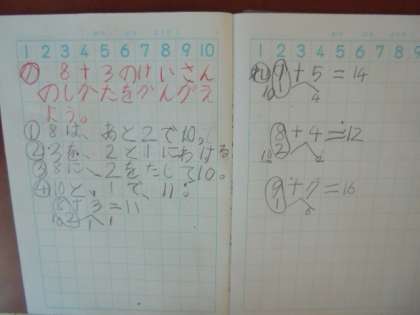 1 2 3 4 5 6 7 8 9 10
め 8+3のけいさん
のしかたをかんがえ
よう。
① 8は、あと2で10。
② 3を、2と1にわける
③ 8に、2をたして10。
④ 10と、1で、11。
8+3=11
10 2 1
1 2 3 4 5 6 7 8 9
9+5=14
10 1 4
8+4=12
10 2 2
9+7=16
1 6